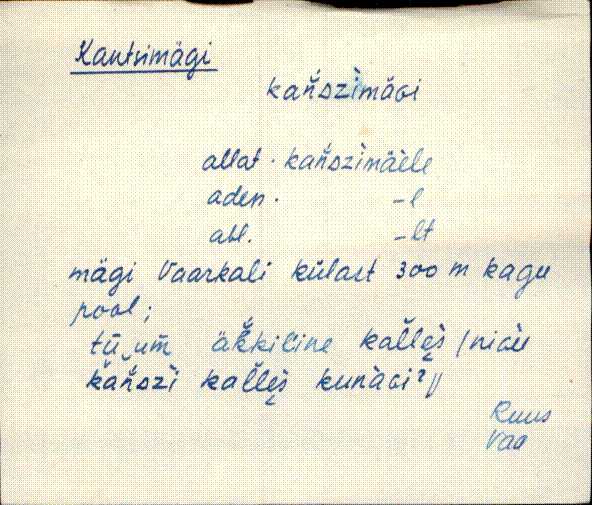 Kantsimägi
kańszìmäGi
allat. kańszìmäèle
aden. -l
abl. -lt
mägi Vaarkali külast 300 m kagu
pool;
tū‿um̄ äk̆kiline kal̆lè̬s (nigu
kańszì kal̆lè̬s kunàGi?)/
Ruus
Vaa